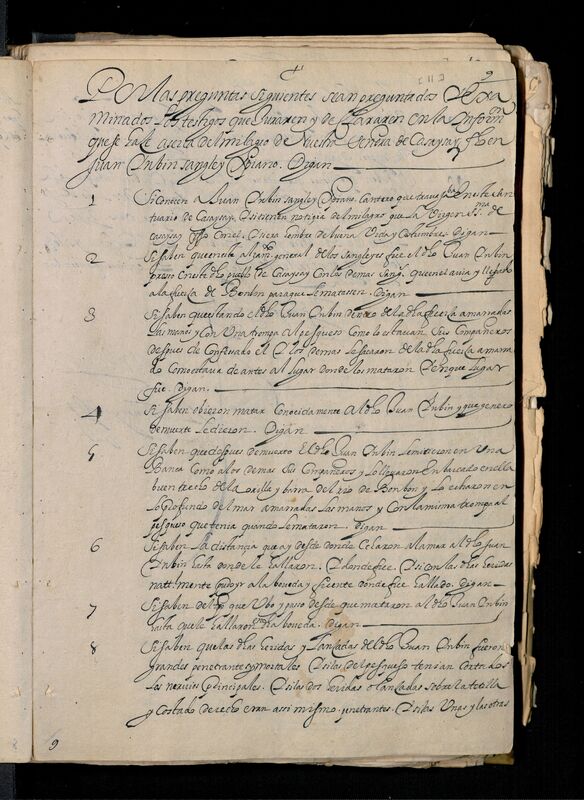 +
[11] 9
Por las preguntas siguientes sean preguntados y exa
minados los testigos que juraren y declararen en la Inform
que se haze acerca del milagro de nuestra señora de Casaysay, sobre
Juan Imbin sangley Xpiano. Digan
1 Si conocen a Juan Imbin sangley Xpiano. Cantero que travajaba en este san
tuario de Casaysay. Si tienen notiçia del milagro que la Virgen ss.ma de
casaysay con el. Y si era hombre de buena vida y costumbres. Digan
2 Si saben que en este alçam.to general de los sangleyes fue el dho Juan Imbin
preso en este dho pueblo de Casaysay con los demas sang.s que en el avia y llevado
a la fuerça de Bonbon para que le matassen. Digan
3 Si saben que estando el dho Juan Imbin dentro de la dha fuerça amarradas
las manos y con una trompa al pesqueso como lo estavan sus compañeros
despues de confessado el y los demas le sacaron de la dha fuerça amarra
do como estava de antes al lugar donde los mataron y en que lugar
fue. Digan.
4 Si saben o vieron matar conocidamente al dho Juan Imbin y que genero
de muerte le dieron. Digan
5 Si saben que despues de muerto el dho Juan Imbin le metieron en una
banca como a los demas sus compañeros y lo llevaron embarcado en ella
buen trecho de la orilla y barra del rio de Bonbon y lo echaron en
lo profundo del mar amarradas las manos y con la misma trompa al
pesqueso que tenia quando le mataron. Digan
6 Si saben la distançia que ay desde donde echaron a la mar al dho Juan
Imbin hasta donde le hallaron. Y donde fue. Y si con las dhas heridas
natt. mente pudo yr a la boveda y fuente donde fue hallado. Digan
7 Si saben del tp.o que ubo y paso desde que mataron al dho Juan Imbin
hasta que le hallaron en la boveda. Digan
8 Si saben que las dhas heridas y lançadas del dho Juan Imbin fueron
grandes penetrantes y mortales. Y si las del pesqueso tenian cortados
los nervios principales. Y si las dos heridas o lançadas sobre la tetilla
y costado derecho eran assi mismo penetrantes. Y si las unas y las otras
9